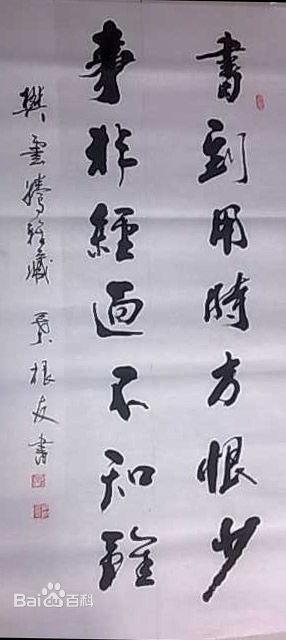 書到用時方恨少
事非經過不知難
樊雲騰雅藏 吳根友書
Bai百科